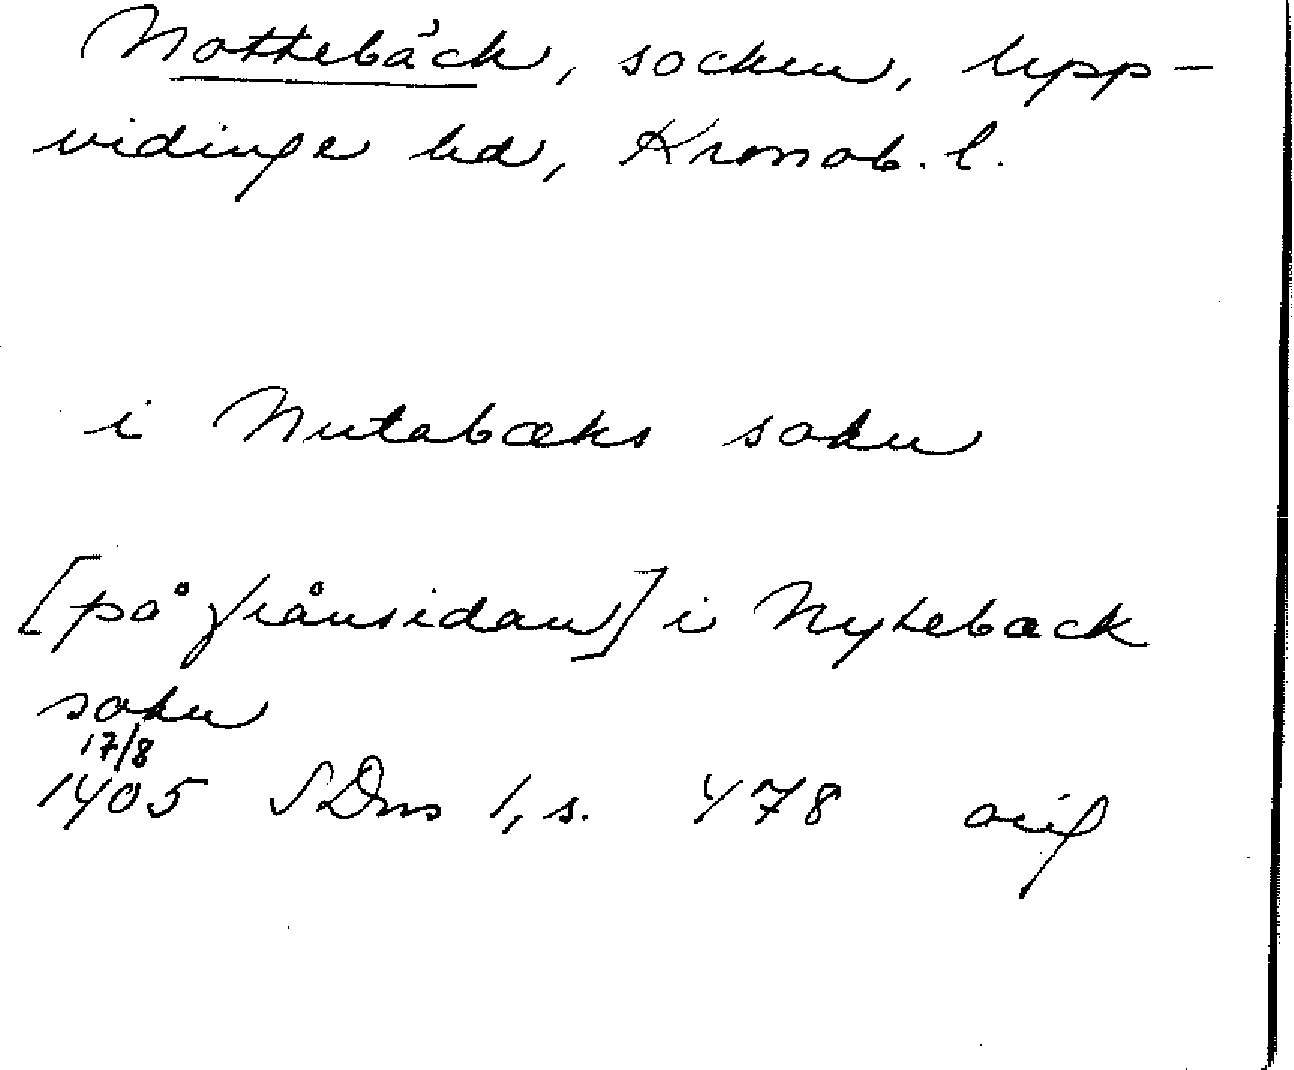 Nottebäck, socken, Upp-
vidinge hd, Kronob. l.
i Nutabæks sokn
[på frånsidan] i Nytebæck
sokn
17/8
1405 SDns 1, s. 478 orig